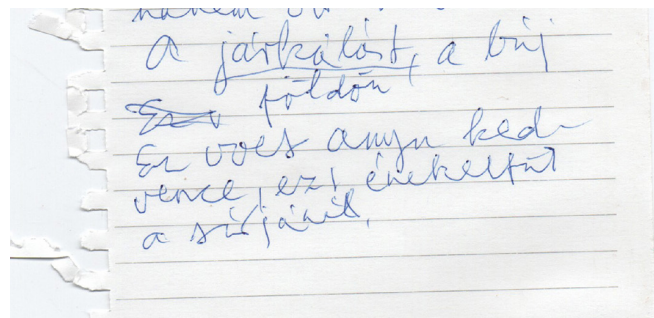 hanem
a járkálást, a búj
földön,
Ez volt anyu ked-
vence, ezt énekeltük
a sírjánál.